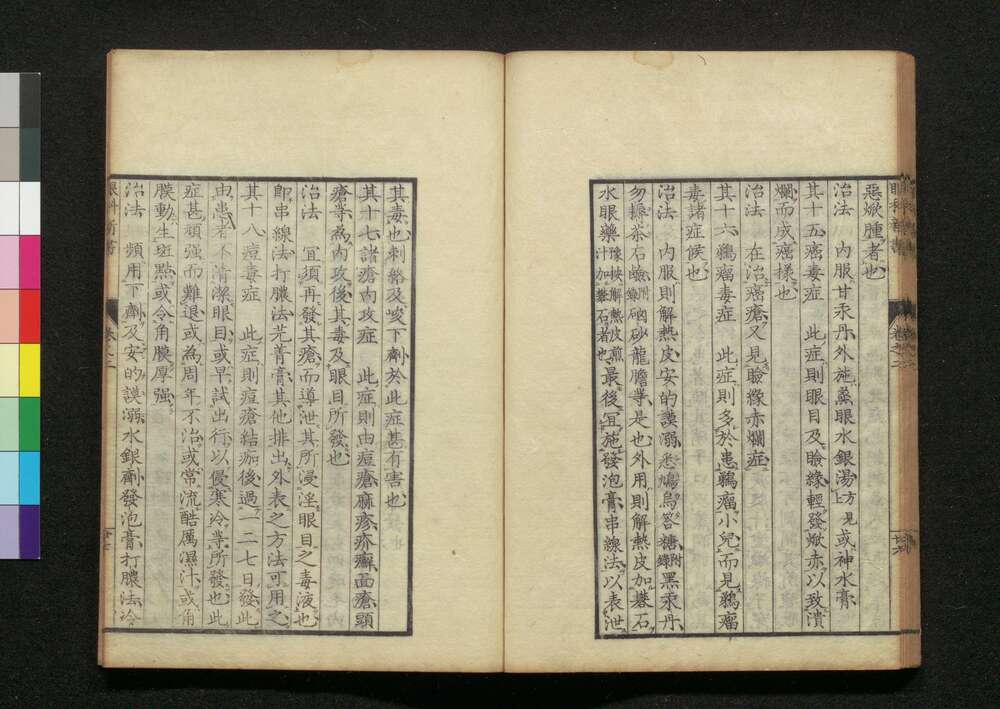 惡焮腫者也
治法　內服甘汞丹外施薰眼水銀湯方見上或神水膏
其十五癌毒症　此症則眼目及瞼緣輕發焮赤以致潰
爛而成癌樣也
治法　在治癌瘡又見瞼緣赤爛症
其十六鵝瘤毒症　此症則多於患鵝瘤小兒而見鵝瘤
毒諸症候也
治法　內服則解熱皮安的謨溺
水眼藥最後宜施發泡膏串線法以表泄
其毒也刺絡及峻下劑於此症甚有害也
其十七諸瘡內攻症　此症則由痘瘡麻疹疥癬面瘡頭
瘡等為內攻後其毒及眼目所發也
治法　宜須再發其瘡而導泄其所浸淫眼目之毒液也
即串線法打膿法芫菁膏其他排出外表之方法可用之
其十八痘毒症　此症則痘瘡結痂後過一二七日發此
由患者不清潔眼目或早試出行以侵寒冷等所發也此
症甚頑強而難退或為周年不治或常流酷厲濕汁或角
膜動生斑點或令角膜厚強
治法　頻用下劑及安的謨溺水銀劑發泡膏打膿法冷
眼科新書
卷之二